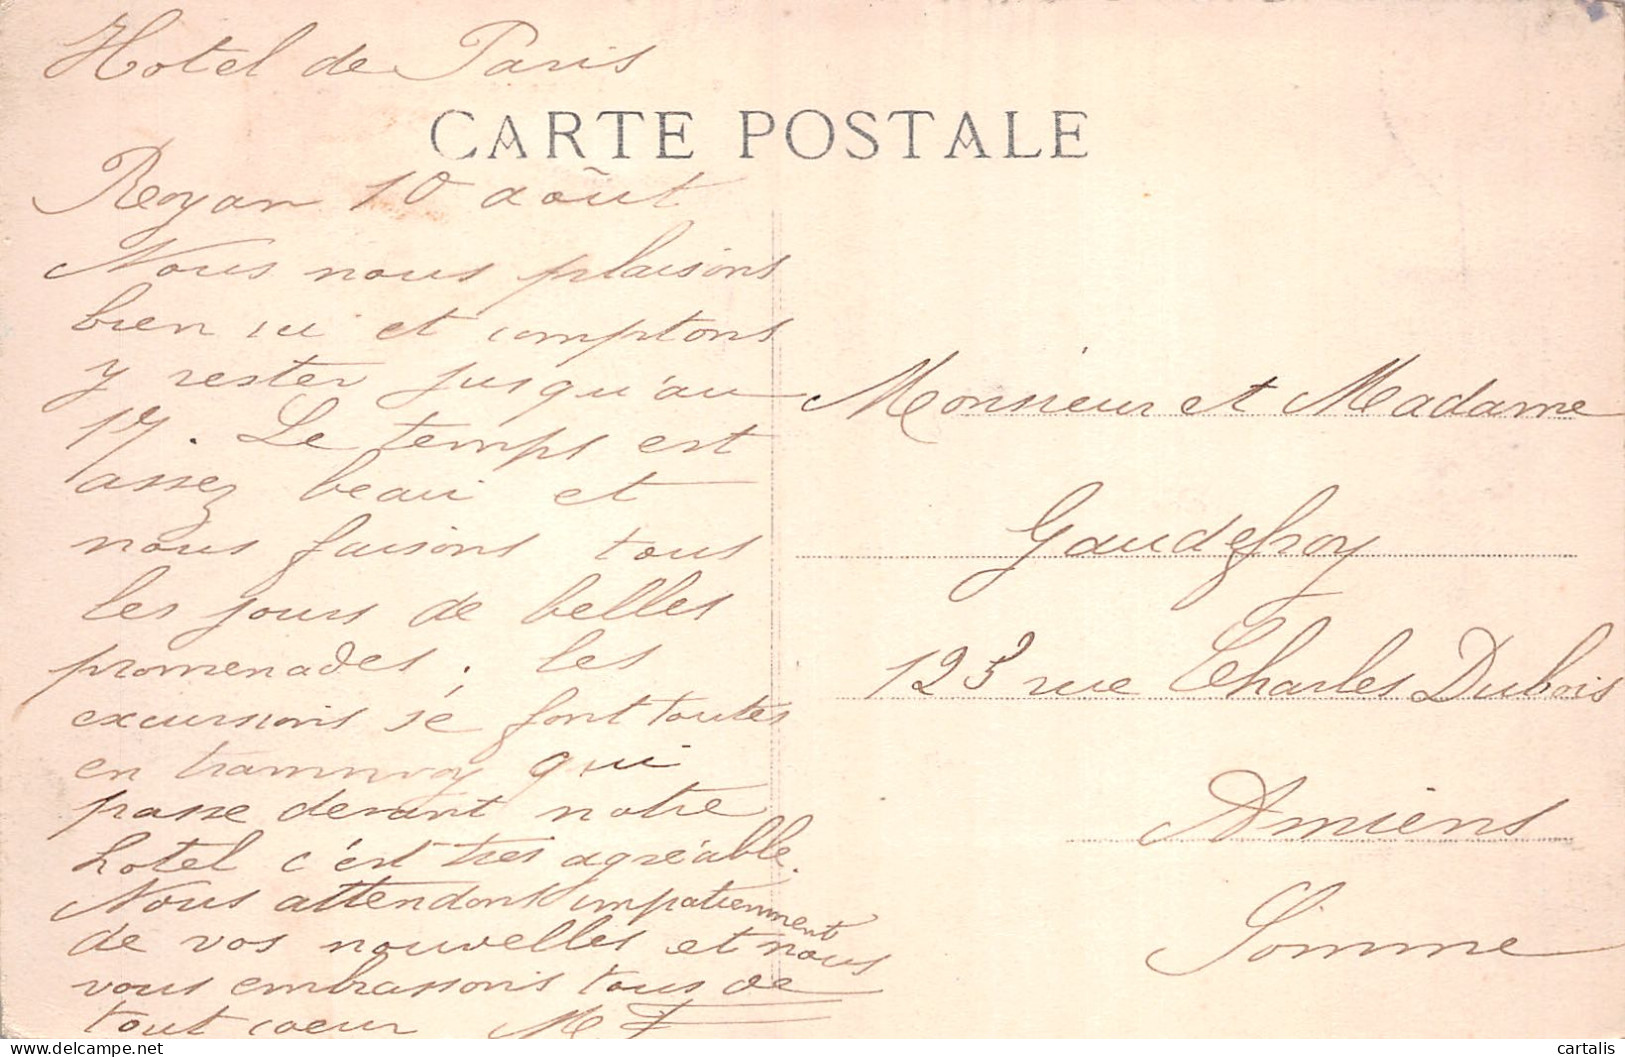 Hotel de Paris
CARTE POSTALE
Royan 10 août
Nous nous plaisons
bien ici et comptons
y rester jusqu'au
17. Le temps est
assez beau et
nous faisons tous
les jours de belles
promenades, les
excursions se font toutes
en trammway qui
passe devant notre
hotel c'est très agréable.
Nous attendons impatiemment
de vos nouvelles et nous
vous embrassons tous de
tout coeur M F
Monsieur et Madame
Gaudefroy
123 rue Charles Dubois
Amiens
Somme
delcampe.net
cartalis